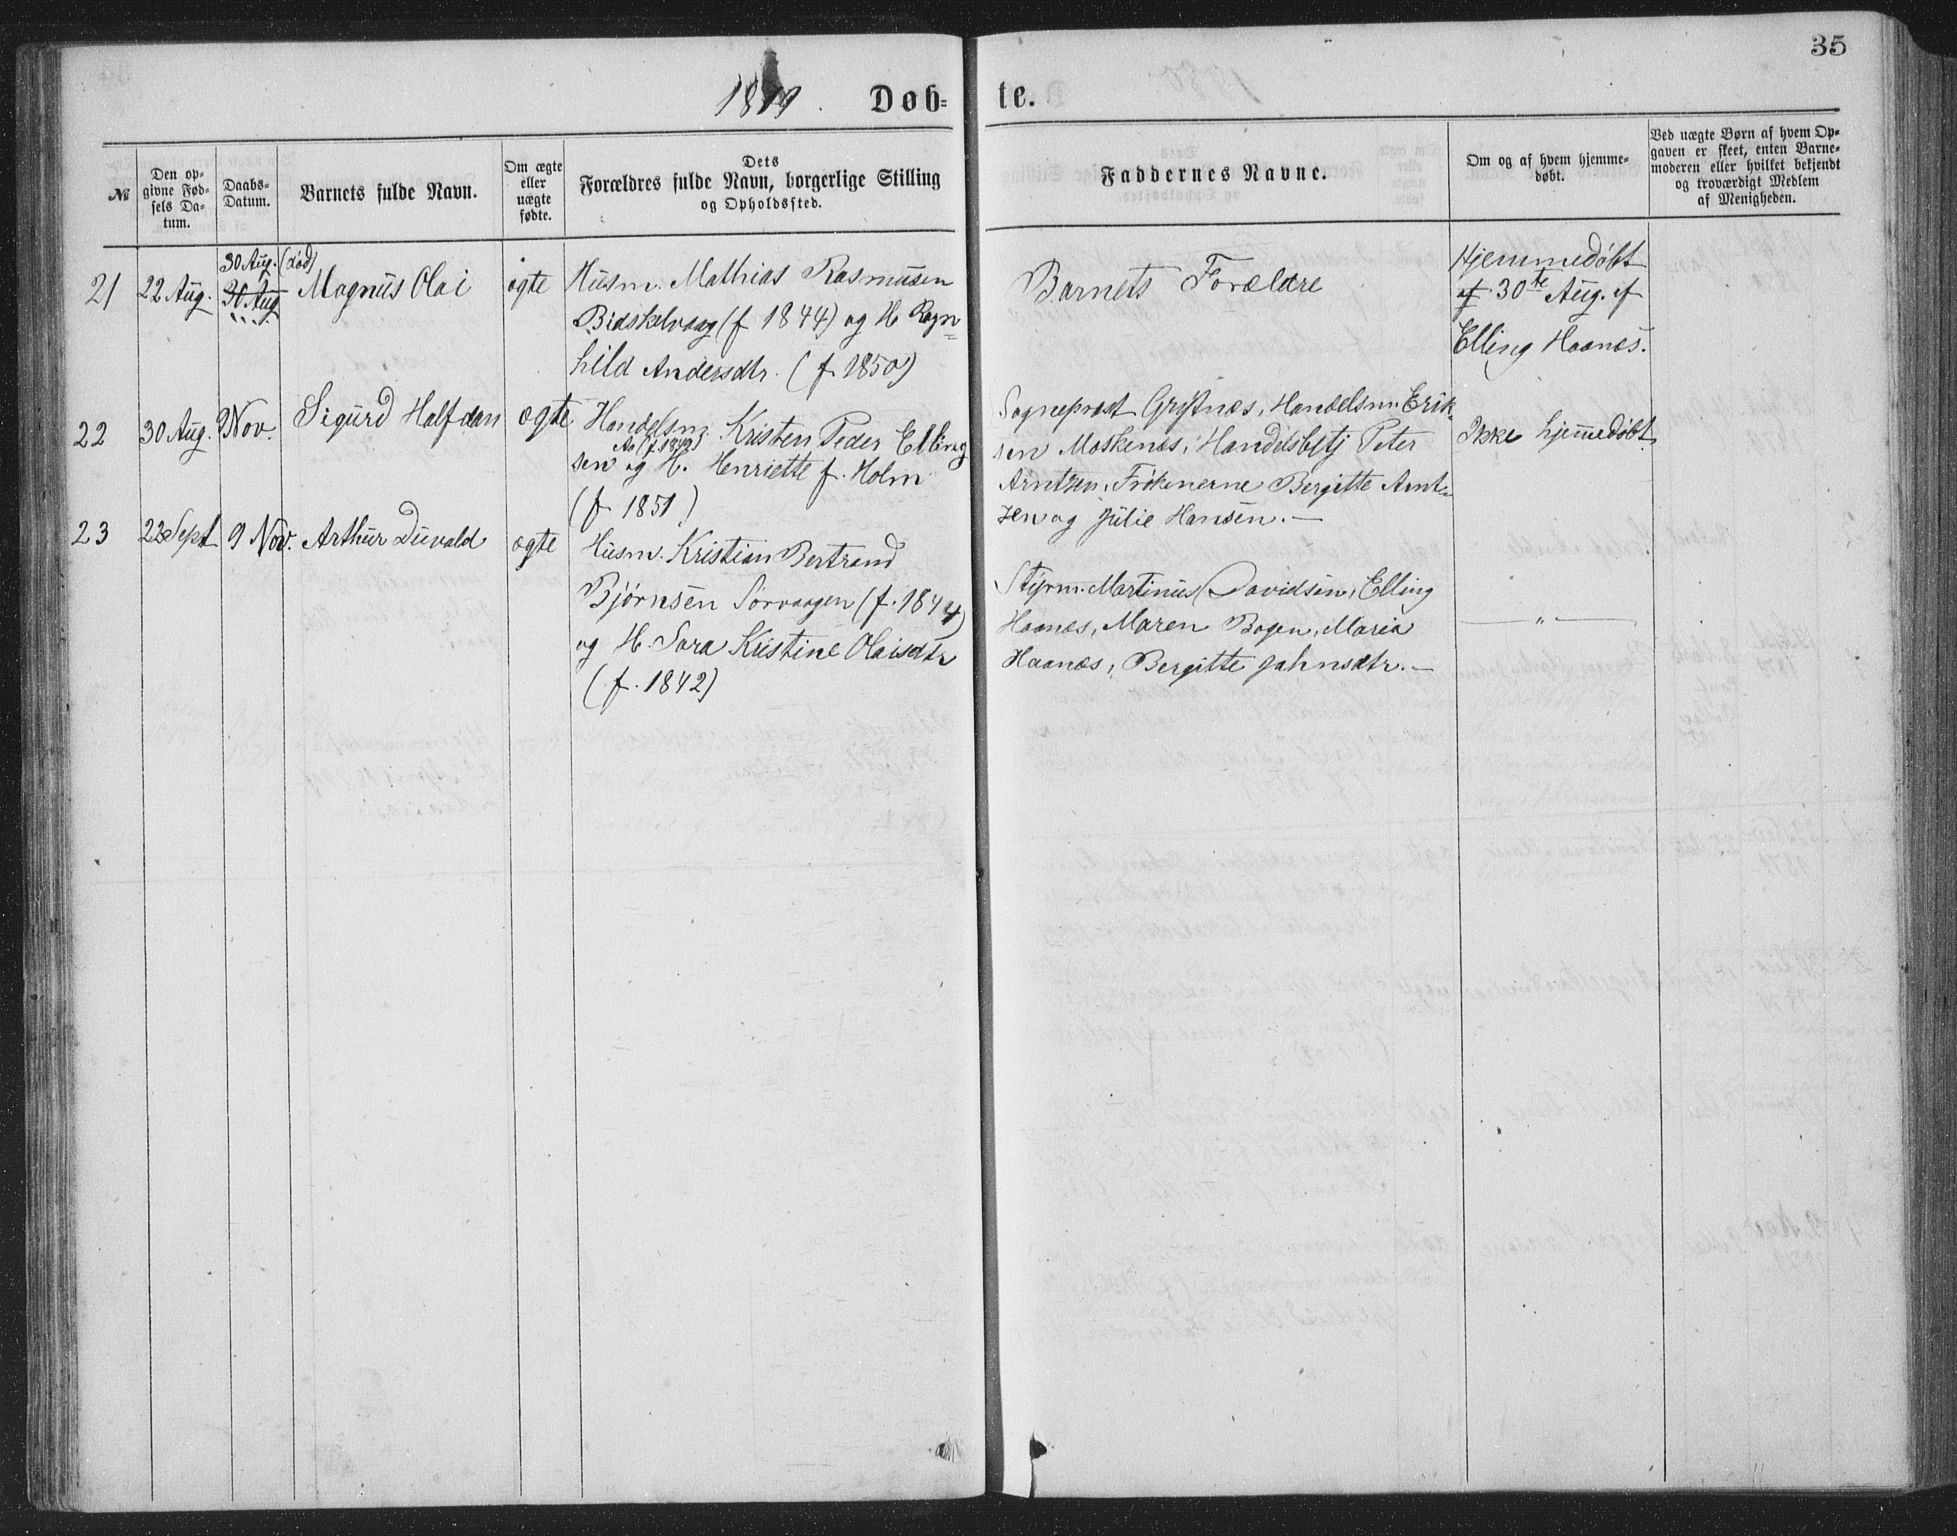 35
1879. Døb- te.
№
Den op-
givne Fød-
sels Da-
tum.
Daabs-
Datum.
Barnets fulde Navn.
Om ægte
eller
uægte
fødte.
Dets
Forældres fulde Navn, borgerlige Stilling
og Opholdssted.
Faddernes Navne.
Om og af hvem hjemme-
døbt.
Ved uægte Børn af hvem Op-
gaven er skeet, enten Barne-
moderen eller hvilket bekjendt
og troværdigt Medlem
af Menigheden.
21 22 Aug. 30 Aug. (død) 30. Aug Magnus Olai ægte
Husm. Mathias Rasmusen
Bidskelvaag (f 1844) og H Ragn=
hild Andersdtr. (f. 1850)
Barnets Forældre
Hjemmedøbt
af 30te Aug. af
Elling Haanæs.
22 30 Aug. 9 Nov. Sigurd Halfdan ægte
Handelsm. Kristen Peder Elling
Aa (f. 1849)
sen og H. Henriette f. Holm
(f. 1851)
Sogneprest Grytnæs, Handelsm. Erik-
sen Moskenæs, Handelsbetj Peter
Arntzen, Frøknerne Bergitte Arnt-
zen og Julie Hansen. —
Ikke hjemedøbt.
23 22 Sept 9 Nov. Arthur Duvald ægte
Husm. Kristian Bertrand
Bjørnsen Sørvaagen (f. 1844)
og H. Sara Kristine Olaisdtr
(f. 1842)
Styrm. Martinus Davidsen, Elling
Haanæs, Maren Bogen, Maria
Haanæs, Bergitte Jahnsdtr. —
— „ —